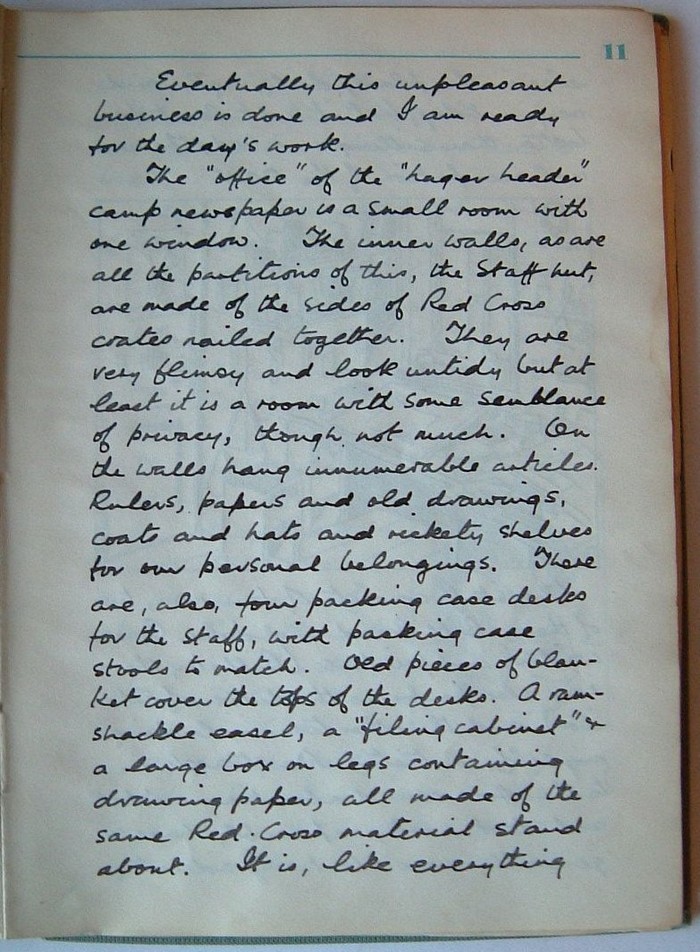 11
Eventually this unpleasant
business is done and I am ready
for the day's work.
The "office" of the "Lager Leader"
camp newspaper is a small room with
one window. The inner walls, as are
all the partitions of this, the Staff hut,
are made of the sides of Red Cross
crates nailed together. They are
very flimsy and look untidy but at
least it is a room with some semblance
of privacy, though not much. On
the walls hang innumerable articles.
Rulers, papers and old drawings,
coats and hats and rickety shelves
for our personal belongings. There
are, also, four packing case desks
for the staff, with packing case
stools to match. Old pieces of blan-
ket cover the tops of the desks. A ram-
shackle easel, a "filing cabinet" &
a large box on legs containing
drawing paper, all made of the
same Red Cross material stand
about. It is, like everything